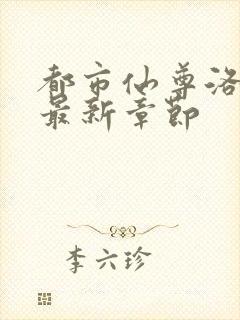 都市仙尊洛
最新章节
李六珍